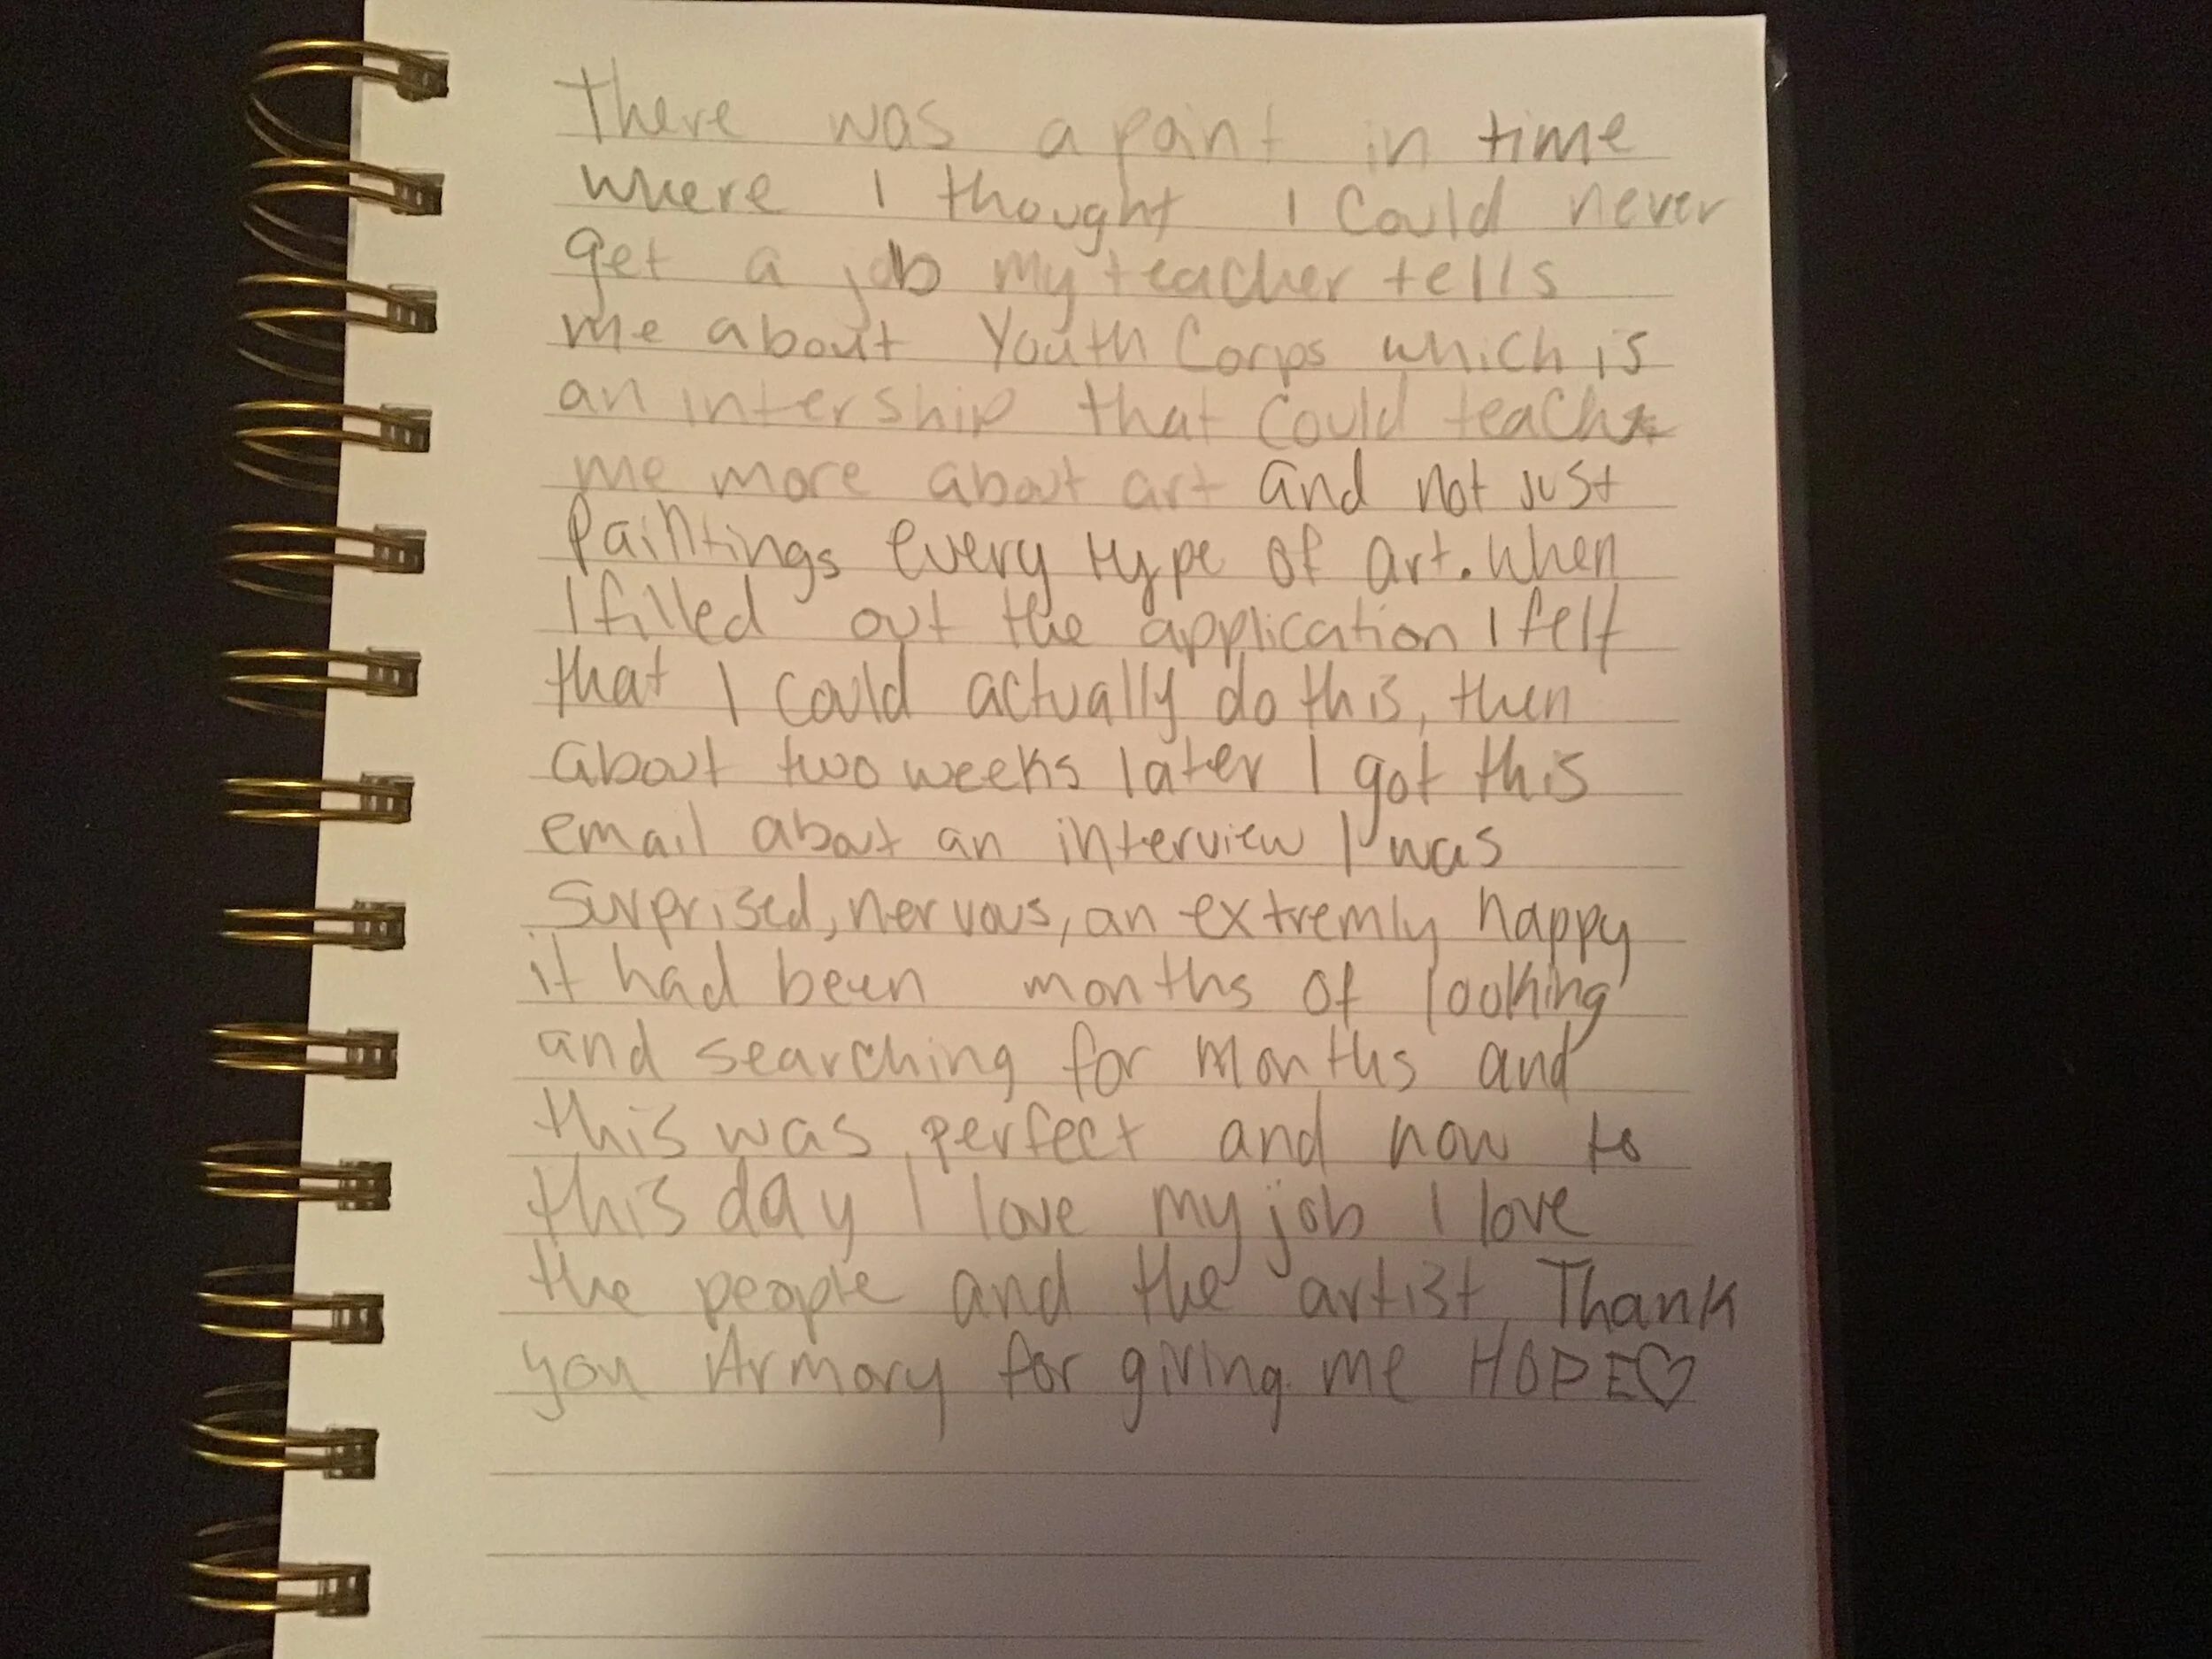 There was a point in time
where I thought I could never
get a job my teacher tells
me about Youth Corps which is
an intership that could teach
me more about art and not just
paintings every type of art. When
I filled out the application I felt
that I could actually do this, then
about two weeks later I got this
email about an interview I was
surprised, nervous, an extremly happy
it had been months of looking
and searching for months and
this was perfect and now to
this day I love my job I love
the people and the artist, Thank
you Armory for giving me HOPE♡